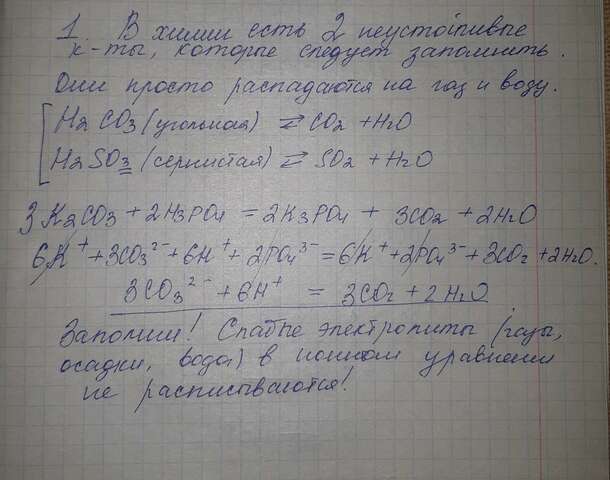 1. В химии есть 2 неустойчивые
к-ты, которые следует запомнить.
Они просто распадаются на газ и воду.
H2CO3 (угольная) ⇄ CO2 + H2O
H2SO3 (сернистая) ⇄ SO2 + H2O
3K2CO3 + 2H3PO4 = 2K3PO4 + 3CO2 + 2H2O
6K⁺ + 3CO3²⁻ + 6H⁺ + 2PO4³⁻ = 6K⁺ + 2PO4³⁻ + 3CO2 + 2H2O.
3CO3²⁻ + 6H⁺ = 3CO2 + 2H2O
Запомни! Слабые электролиты (газы,
осадки, вода) в ионном уравнении
не расписываются!